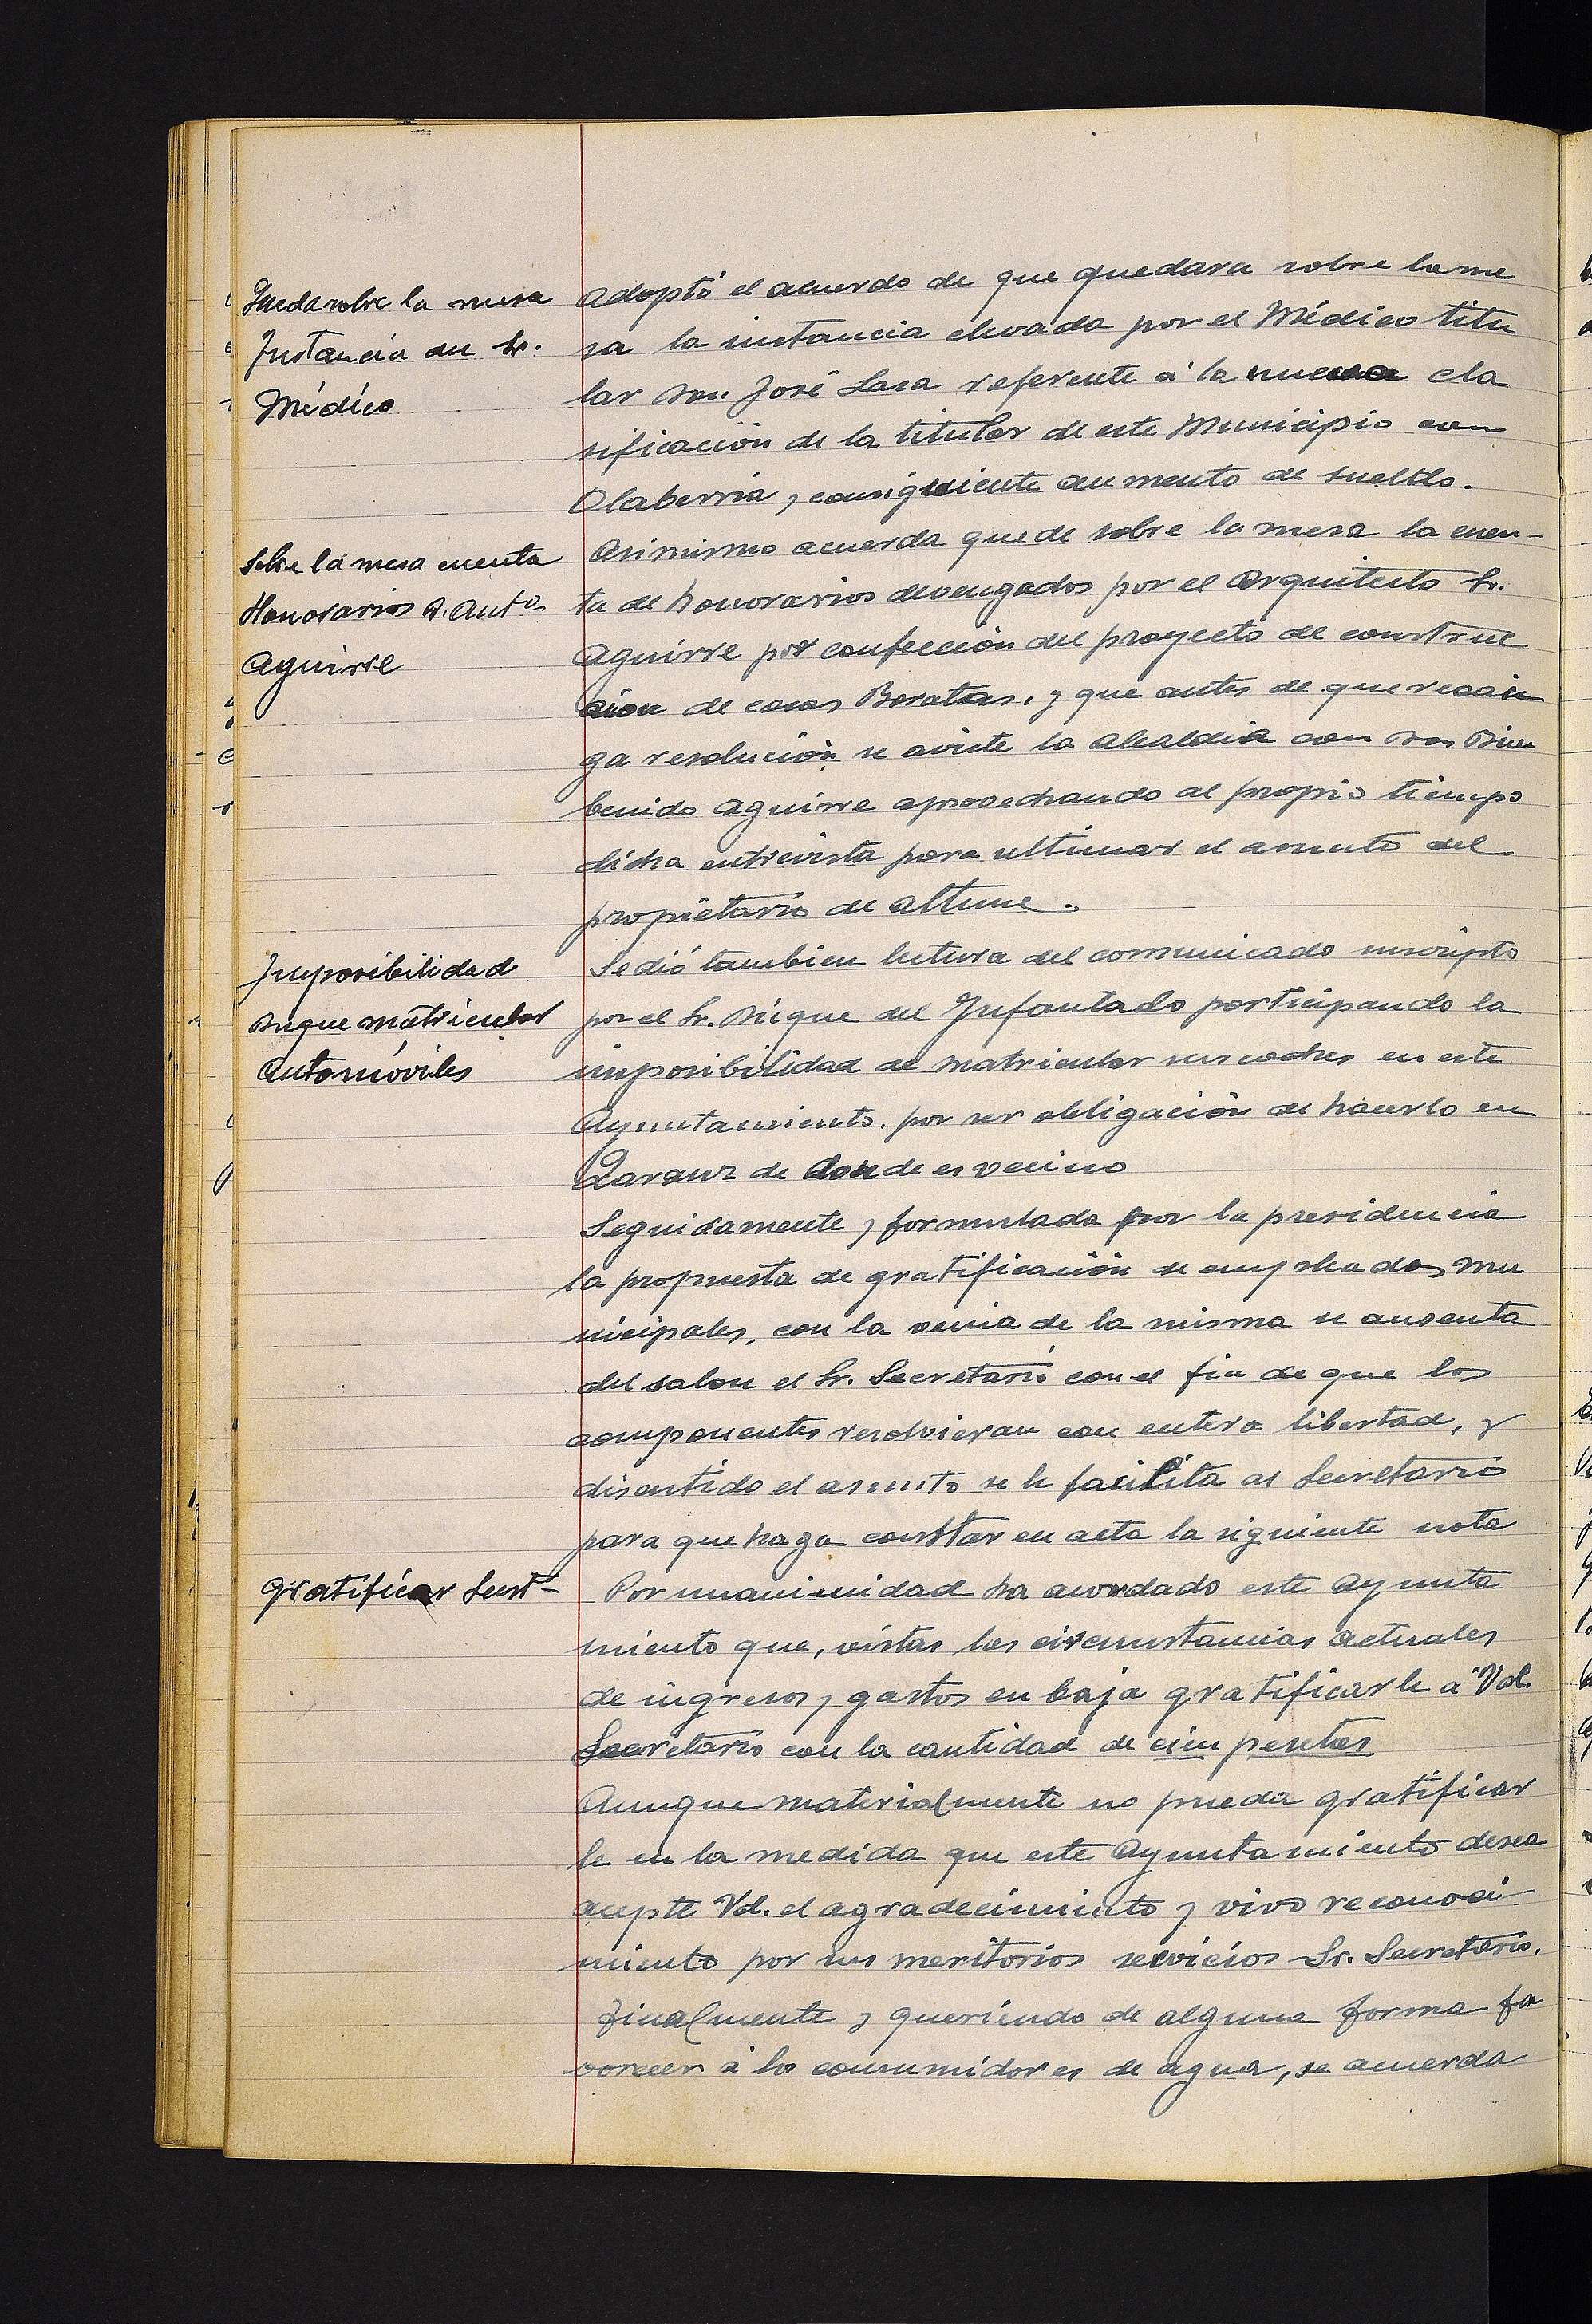 Queda sobre la mesa
Instancia del Sr.
Médico
adoptó el acuerdo de que quedara sobre la me
sa la instancia elevada por el Médico titu
lar Don José Lasa referente á la nueva cla
sificación de la titular de este Municipio con
Olaberria y consiguiente aumento de sueldo.
Sobre la mesa cuenta
Honorarios D. Antº
Aguirre
Asimismo acuerda quede sobre la mesa la cuen-
ta de honorarios devengados por el Arquitecto Sr.
Aguirre por confección del proyecto de construc
ción de casas Baratas. y que antes de que recai
ga resolución se aviste la Alcaldia con Don Bien
benido Aguirre aprovechando al propio tiempo
dicha entrevista para ultimar el asunto del
propietario de Altune.
Imposibilidad
Duque matricular
Automóviles
Se dió tambien lectura del comunicado suscripto
por el Sr. Duque del Infantado participando la
imposibilidad de matricular sus coches en este
Ayuntamiento. por ser obligación de hacerlo en
Zarauz de donde es vecino
Seguidamente y formulada por la presidencia
la propuesta de gratificación de empleados mu
nicipales, con la venia de la misma se ausenta
del salon el Sr. Secretario con el fin de que los
componentes resolvieran con entera libertad, y
discutido el asunto se le facilita al Secretario
para que haga constar en acta la siguiente nota
Gratificar Secret
Por unanimidad ha acordado este Ayunta
miento que, vistas las circunstancias actuales
de ingresos y gastos en baja gratificarle á Vd.
Secretario con la cantidad de cien pesetas
Aunque materialmente no pueda gratificar
le en la medida que este Ayuntamiento desea
acepte Vd. el agradecimiento y vivo reconoci
miento por sus meritorios servicios Sr. Secretario.
Finalmente y queriendo de alguna forma fa
vorecer á los consumidores de agua, se acuerda